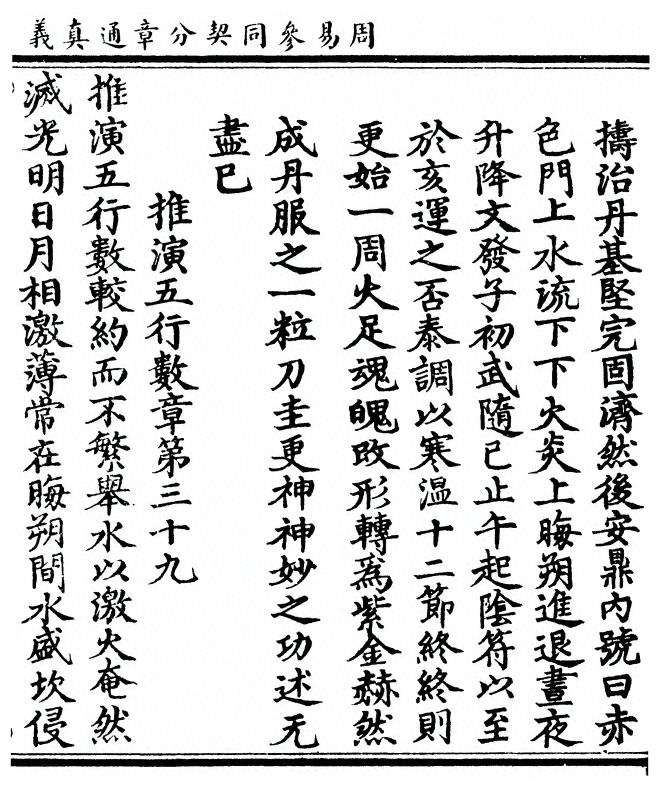 周易參同契分章通真義
擣治丹基堅完固濟然後安鼎內號曰赤
色門上水流下下火炎上晦朔進退晝夜
升降文發子初武隨巳止午起陰符以至
於亥運之否泰調以寒溫十二節終終則
更始一周火足魂魄改形轉為紫金赫然
成丹服之一粒刀圭更神神妙之功述无
盡已
推演五行數章第三十九
推演五行數較約而不繁舉水以激火奄然
滅光明日月相激薄常在晦朔間水盛坎侵